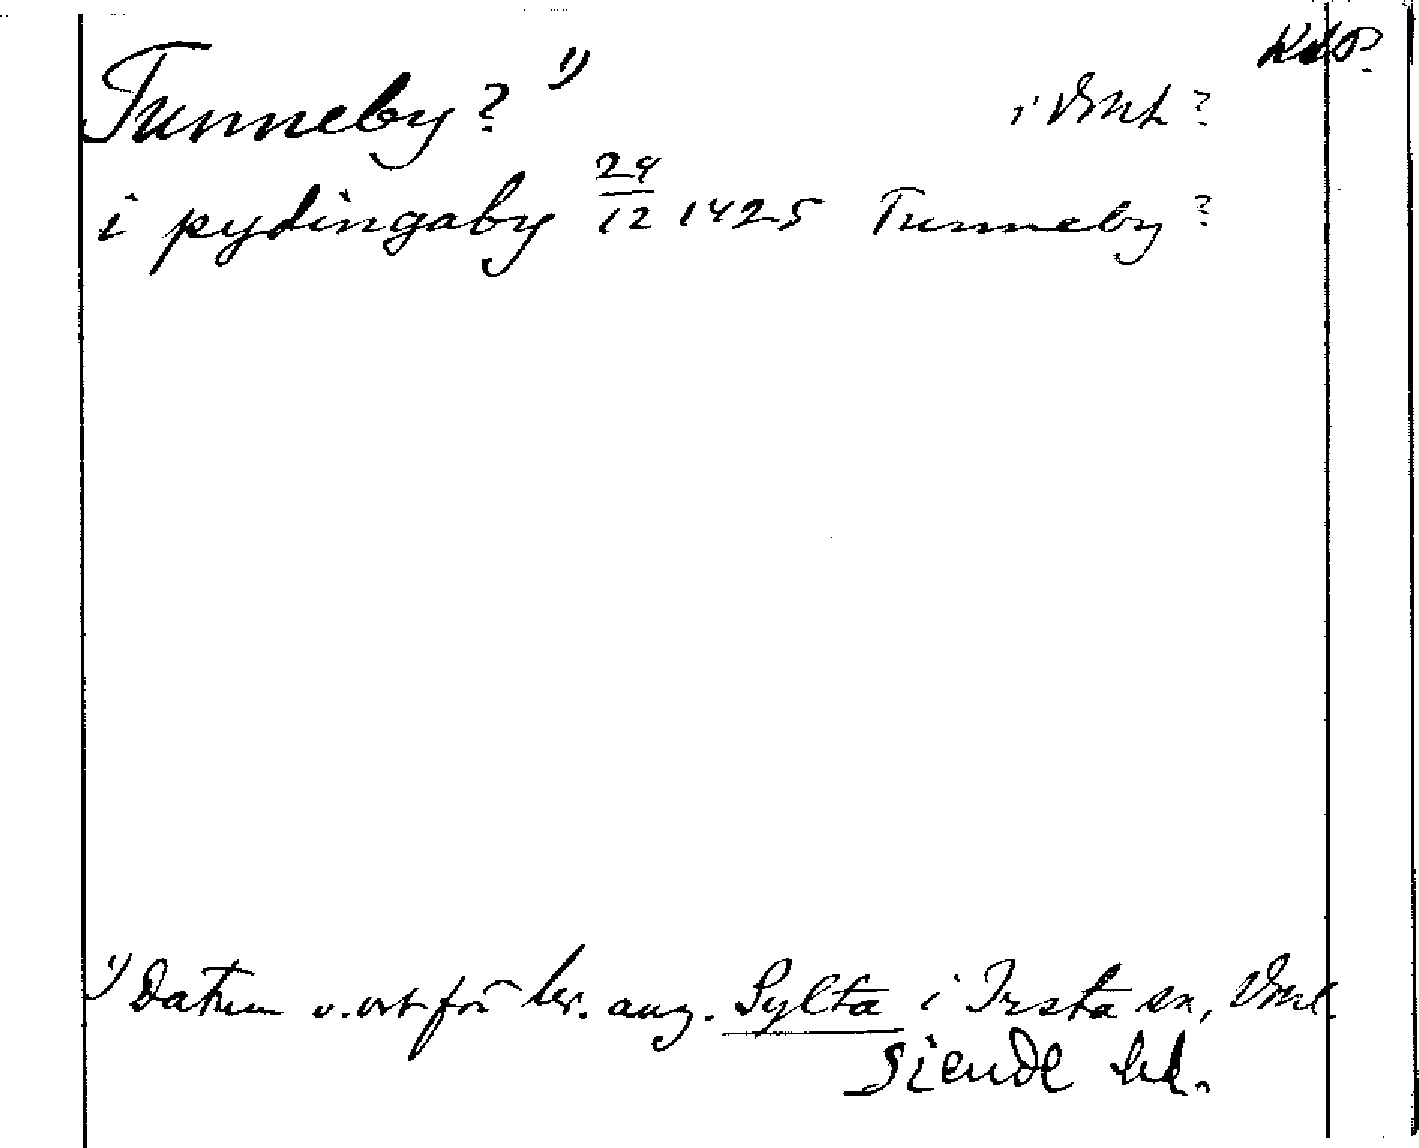 Tunneby? 1)
i Vstml?
i pydingaby 29/12 1425 Tunneby?
1) Datum o. ort för br. ang. Sylta i Irsta sn, Vstml.
Siende hd.